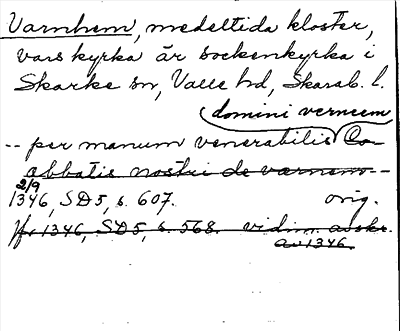 Varnhem, medeltida kloster,
vars kyrka är sockenkyrka i
Skarke sn, Valle hd, Skarab. l.
domini verneem
-- per manum venerabilis Co
abbatis nostri de varnem --
2/9
1346, SD5, s. 607. orig.
1346, SD5, s. 568. vidim. avskr.
av 1346.